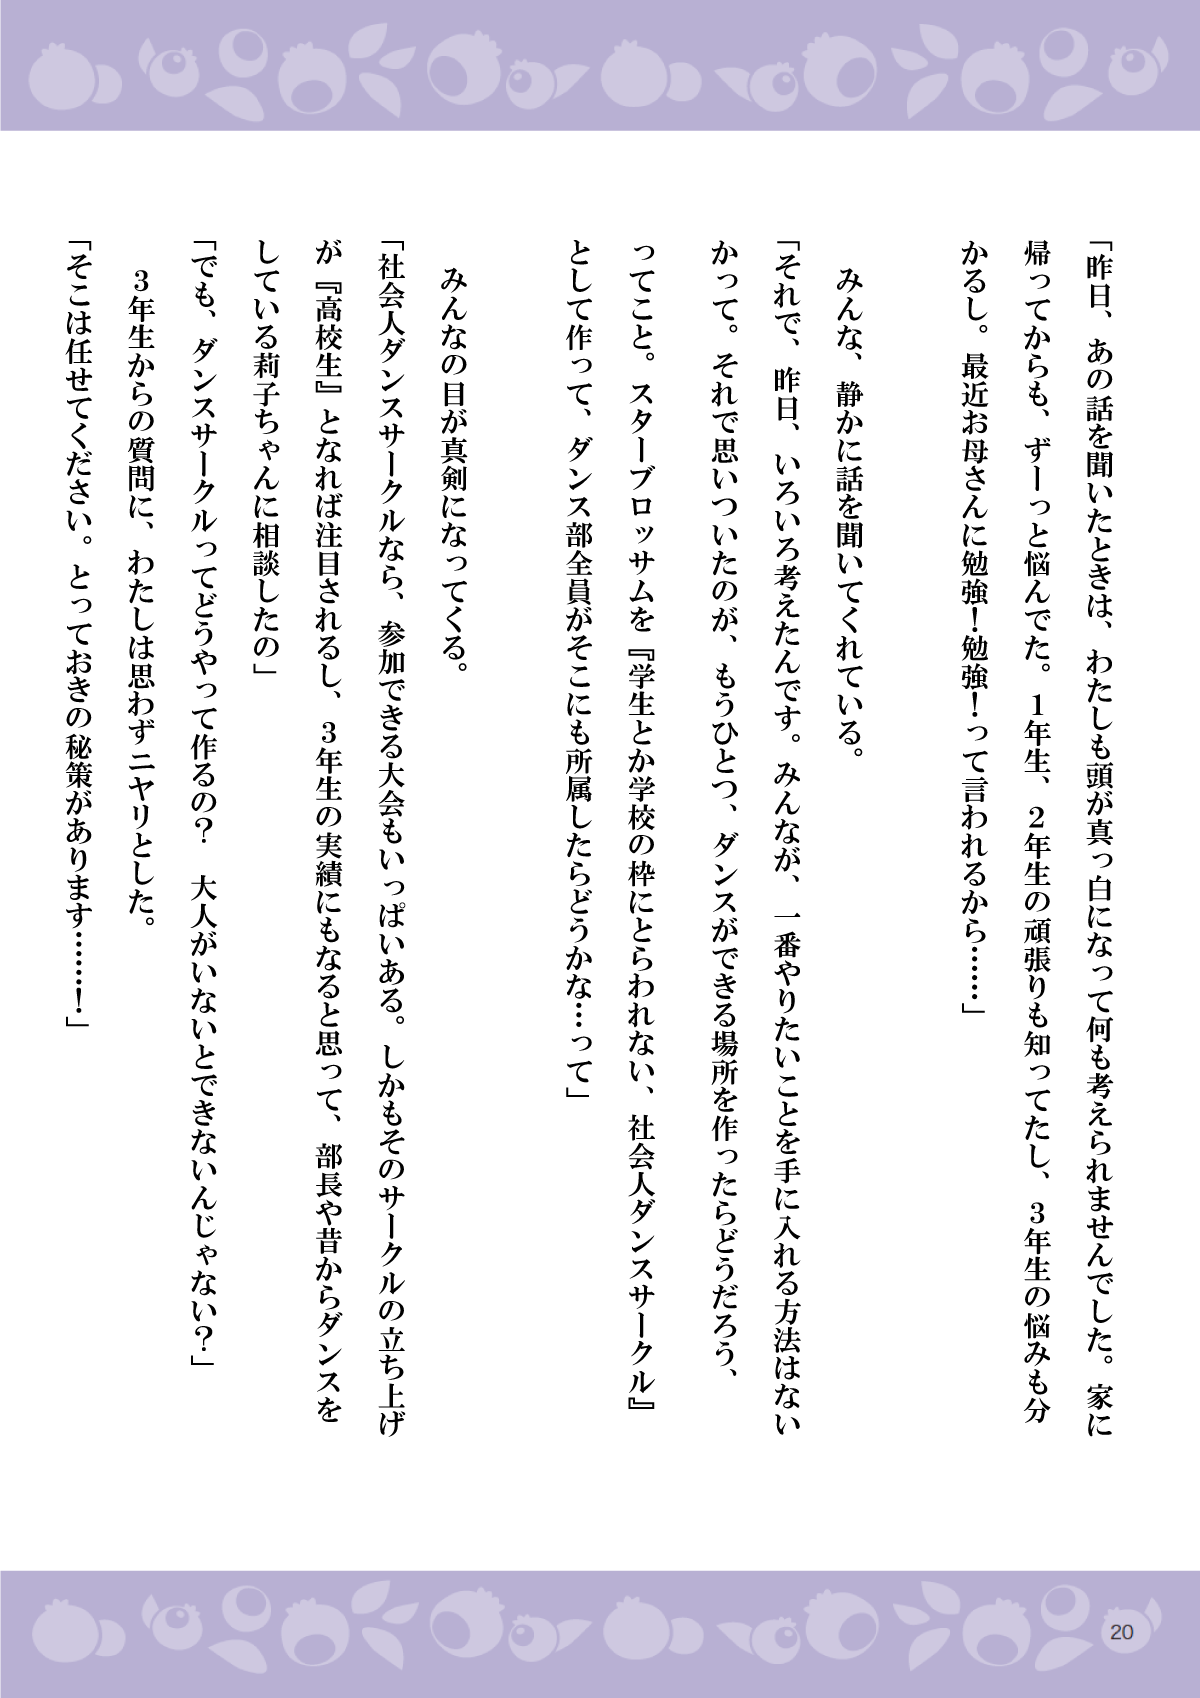 「昨日、あの話を聞いたときは、わたしも頭が真っ白になって何も考えられませんでした。家に
帰ってからも、ずーっと悩んでた。1年生、2年生の頑張りも知ってたし、3年生の悩みも分
かるし。最近お母さんに勉強！勉強！って言われるから……」
みんな、静かに話を聞いてくれている。
「それで、昨日、いろいろ考えたんです。みんなが、一番やりたいことを手に入れる方法はない
かって。それで思いついたのが、もうひとつ、ダンスができる場所を作ったらどうだろう、
ってこと。スターブロッサムを『学生とか学校の枠にとらわれない、社会人ダンスサークル』
として作って、ダンス部全員がそこにも所属したらどうかな…って」
みんなの目が真剣になってくる。
「社会人ダンスサークルなら、参加できる大会もいっぱいある。しかもそのサークルの立ち上げ
が『高校生』となれば注目されるし、3年生の実績にもなると思って、部長や昔からダンスを
している莉子ちゃんに相談したの」
「でも、ダンスサークルってどうやって作るの？　大人がいないとできないんじゃない？」
3年生からの質問に、わたしは思わずニヤリとした。
「そこは任せてください。とっておきの秘策があります……！」
20